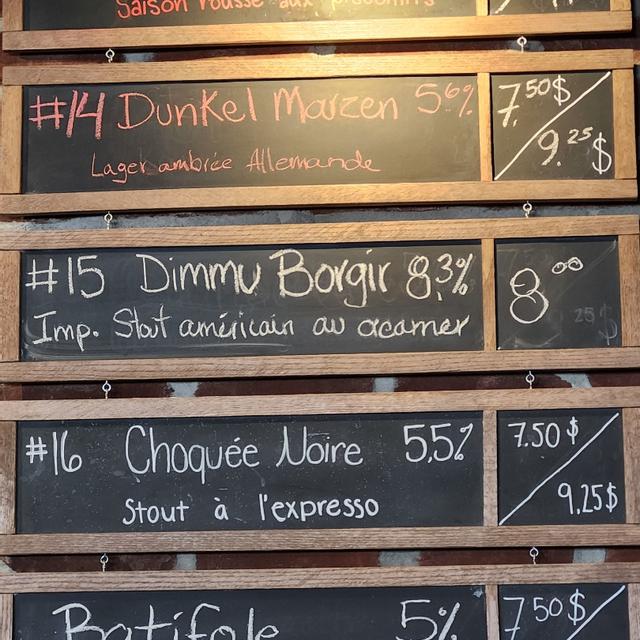 Saison rousse aux
#14 Dunkel Marzen 56% 7.50$/
Lager ambrée Allemande 9.25$
#15 Dimmu Borgir 8.3% 8.00
Imp. Stout américain au cacamer
#16 Choquée Noire 5,5% 7.50$/
Stout à l'expresso 9,25$
Batifole 5% 7.50$/